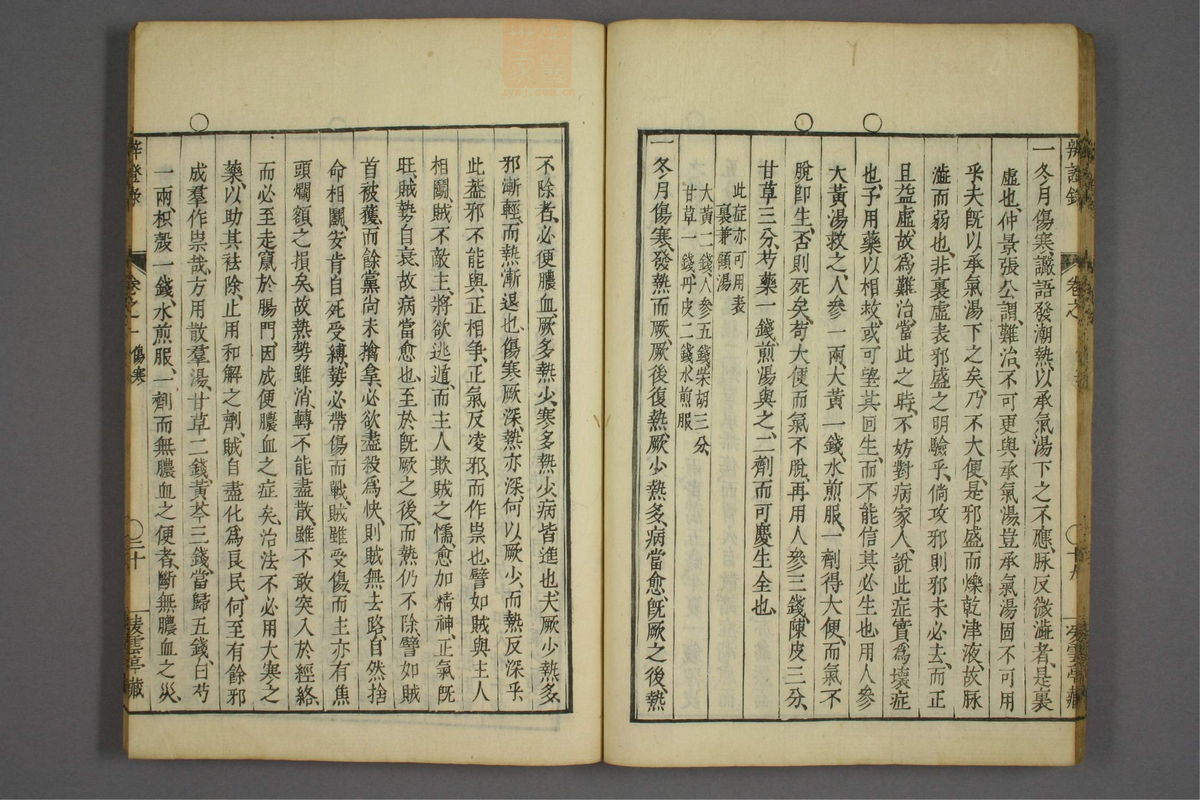 辨證錄
卷之一
一冬月傷寒譫語發潮熱以承氣湯下之不應脉反微濇者是裏
虛也仲景張公謂難治不可更與承氣湯豈承氣湯固不可用
乎夫旣以承氣湯下之矣乃不大便是邪盛而爍乾津液故脉
濇而弱也非裏虛表邪盛之明驗乎倘攻邪則邪未必去而正
且益虛故爲難治當此之時不妨對病家人說此症實爲壞症
也予用藥以相救或可望其回生而不能信其必生也用人參
大黃湯救之人參一兩大黃一錢水煎服一劑得大便而氣不
脫卽生否則死矣苟大便而氣不脫再用人參三錢陳皮三分
甘草三分芍藥一錢煎湯與之二劑而可慶生全也
此症亦可用表
裏兼顧湯
大黃二錢人參五錢柴胡三分
甘草一錢丹皮二錢水煎服
一冬月傷寒發熱而厥厥後復熱厥少熱多病當愈旣厥之後熱
不除者必便膿血厥多熱少寒多熱少病皆進也夫厥少熱多
邪漸輕而熱漸退也傷寒厥深熱亦深何以厥少而熱反深乎
此葢邪不能與正相爭正氣反凌邪而作祟也譬如賊與主人
相鬭賊不敵主將欲逃遁而主人欺賊之懦愈加精神正氣旣
旺賊勢自衰故病當愈也至於旣厥之後而熱仍不除譬如賊
首被獲而餘黨尚未擒拿必欲盡殺爲快則賊無去路自然捨
命相鬭安肯自死受縛勢必帶傷而戰賊雖受傷而主亦有焦
頭爛額之損矣故熱勢雖消轉不能盡散雖不敢突入於經絡
而必至走竄於腸門因成便膿血之症矣治法不必用大寒之
藥以助其祛除止用和解之劑賊自盡化爲良民何至有餘邪
成羣作祟哉方用散羣湯甘草二錢黃芩三錢當歸五錢白芍
一兩枳殼一錢水煎服一劑而無膿血之便者斷無膿血之災
卷之一 傷寒
三十